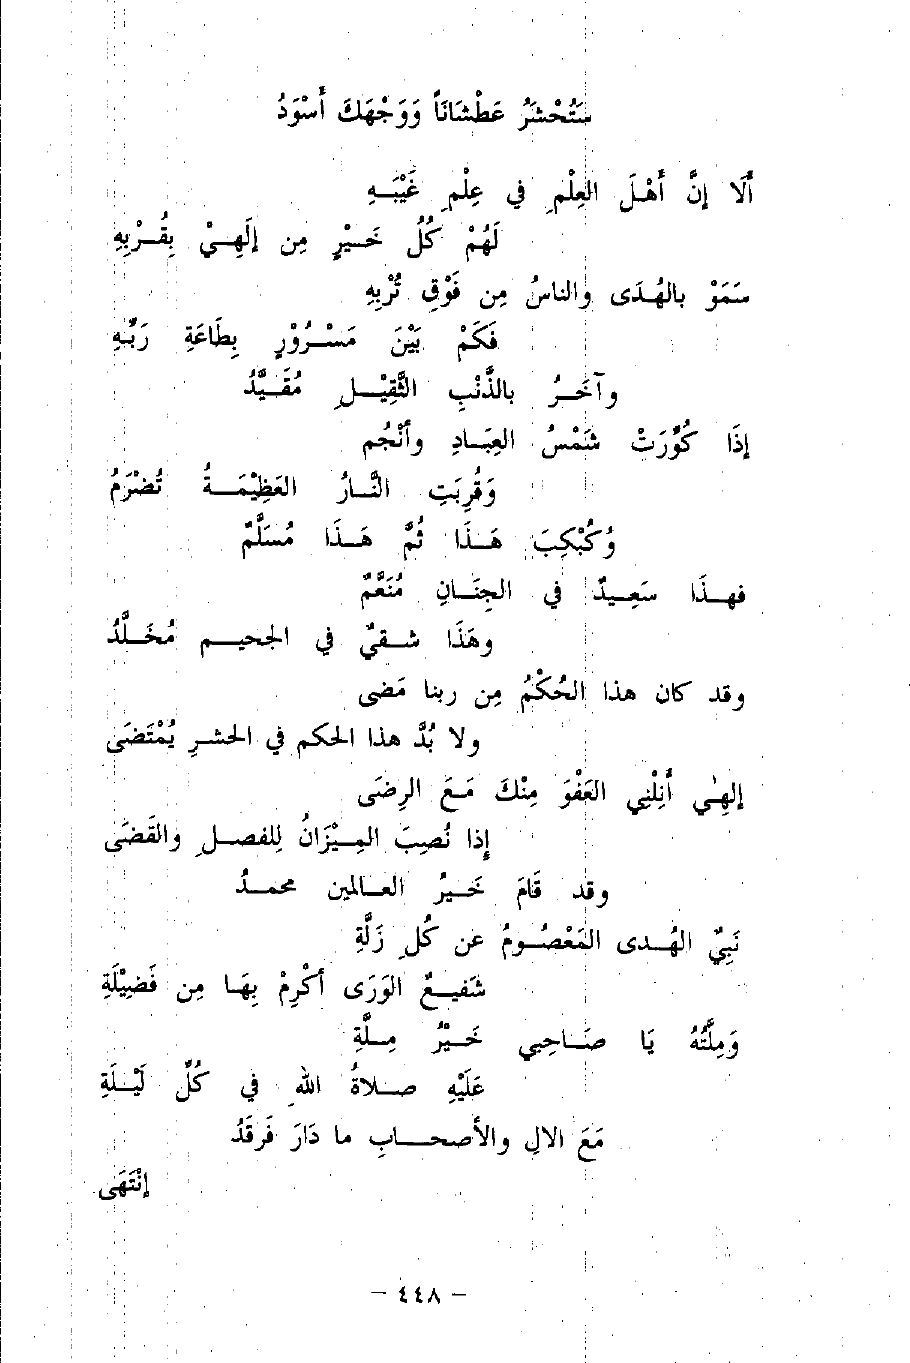 سَتُحْشَرُ عَطْشَاناً وَوَجْهَكَ أَسْوَدُ
أَلَا إِنَّ أَهْلَ العِلْمِ في عِلْمِ غَيْبَـهِ
لَهُمْ كُلُ خَـيْرٍ مِن إِلَهِـيْ بِقُـرْبِهِ
سَمَوْ بالهُدَى والناسُ مِن فَوْقِ تُرْبِهِ
فَكَمْ بَيْنَ مَسْـرُوْرٍ بِطَاعَةِ رَبِّـهِ
وآخَـرُ بالذَّنْبِ الثَّقِيْـلِ مُقَيَّـدُ
إذَا كُوِّرَتْ شَمْسُ العِبَـادِ وأَنْجُم
وَقُرِبَتِ النَّـارُ العَظِيْمَـةُ تُضْرَمُ
وُكُبْكِبَ هَـذَا ثُمَّ هَـذَا مُسَلَّمٌ
فهـذَا سَعِـيدٌ في الجِنَـانِ مُنَعَّمٌ
وهَذَا شـقيٌ في الجحيـم مُخَـلَّدُ
وقد كان هذا الحُكْمُ مِن ربنا مَضى
ولا بُدَّ هذا الحكم في الحشرِ يُمْتَضَى
إلهِي أَنِلْنِي العَفْوَ مِنْكَ مَـعَ الرِضَى
إِذا نُصِبَ المِـيْزَانُ لِلفصـلِ والقَضَى
وقد قَامَ خَـيرُ العـالمين محمـدُ
نَبِيٌ الهُـدى المَعْصُـومُ عن كُلِ زَلَّةِ
شَفيـعٌ الوَرَى أكْرِمْ بِهَـا مِن فَضِيْلَةِ
وَمِلَّتُهُ يَا صَـاحِبي خَـيْرُ مِـلَّةِ
عَلَيْهِ صـلاةُ اللهِ في كُلِّ لَيْـلَةِ
مَعَ الالِ والأصحـابِ ما دَارَ فَرقَدُ
إنْتَهَى
– ٤٤٨ –